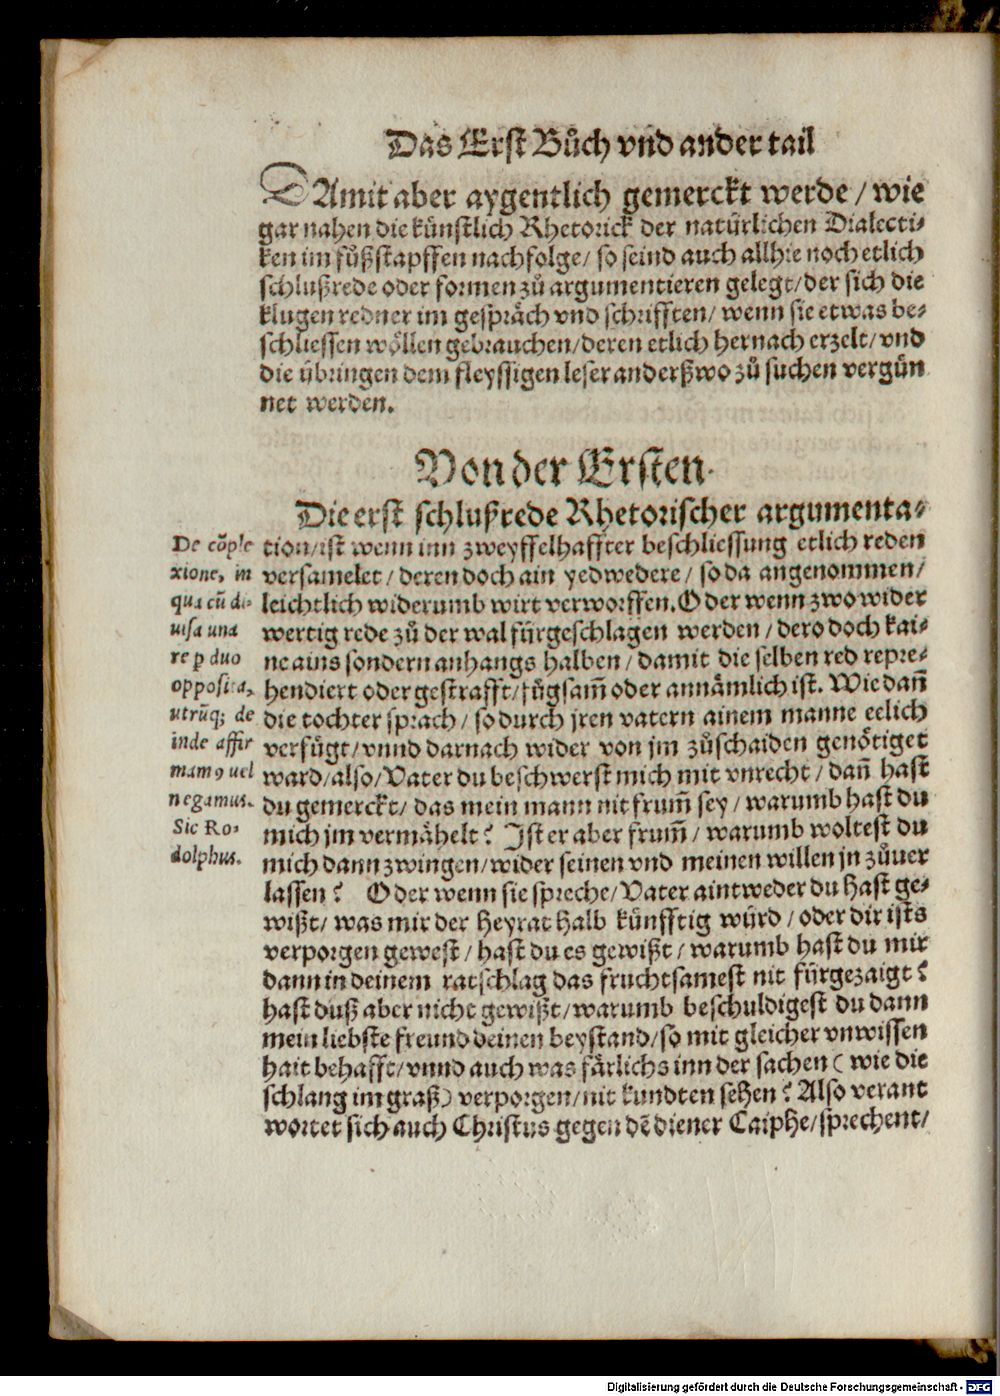 Das Erst Bůch vnd ander tail
DAmit aber aygentlich gemerckt werde / wie
gar nahen die künstlich Rhetorick der natürlichen Dialecti-
ken im fůßstapffen nachfolge / so seind auch allhie noch etlich
schlußrede oder formen zů argumentieren gelegt / der sich die
klugen redner im gespräch vnd schrifften / wenn sie etwas be-
schliessen wöllen gebrauchen / deren etlich hernach erzelt / vnd
die übringen dem fleyssigen leser anderßwo zů suchen vergün
net werden.
Von der Ersten.
Die erst schlußrede Rhetorischer argumenta-
tion / ist wenn inn zweyffelhaffter beschliessung etlich reden
versamelet / deren doch ain yedwedere / so da angenommen /
leichtlich widerumb wirt verworffen. Oder wenn zwo wider
wertig rede zů der wal fürgeschlagen werden / dero doch kai-
ne ains sondern anhangs halben / damit die selben red repre-
hendiert oder gestrafft / fůgsam̃ oder annämlich ist. Wie dañ
die tochter sprach / so durch jren vatern ainem manne eelich
verfůgt / vnnd darnach wider von jm zůschaiden genötiget
ward / also / Vater du beschwerst mich mit vnrecht / dañ hast
du gemerckt / das mein mann nit frum̃ sey / warumb hast du
mich jm vermähelt? Ist er aber frum̃ / warumb woltest du
mich dann zwingen / wider seinen vnd meinen willen jn zůuer
lassen? Oder wenn sie spreche / Vater aintweder du hast ge-
wißt / was mir der Heyrat halb künfftig würd / oder dir ists
verporgen gewest / hast du es gewißt / warumb hast du mir
dann in deinem ratschlag das fruchtsamest nit fürgezaigt?
hast duß aber nicht gewißt / warumb beschuldigest du dann
mein liebste freund deinen beystand / so mit gleicher vnwissen
hait behafft / vnnd auch was färlichs inn der sachen (wie die
schlang im graß) verporgen / nit kundten sehen? Also verant
wortet sich auch Christus gegen dẽ diener Caiphe / sprechent /
De cõple
xione, in
qua cũ di-
uisa una
re ꝑ duo
opposita,
utrũq; de
inde affir
mamꝰ uel
negamus.
Sic Ro-
dolphus.
Digitalisierung gefördert durch die Deutsche Forschungsgemeinschaft - DFG